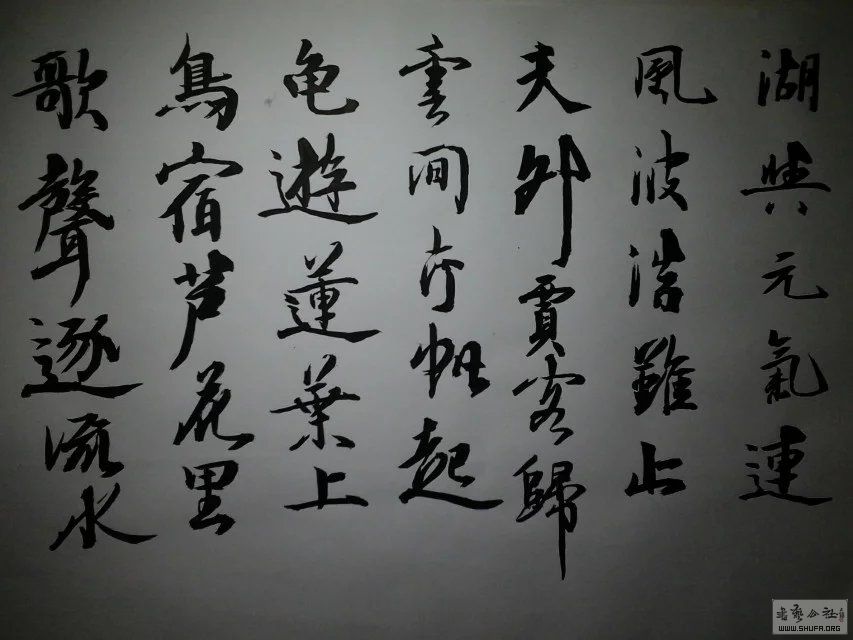 湖與元氣連
風波浩難止
天外賈客歸
雲間片帆起
亀遊蓮葉上
鳥宿芦花里
歌聲逐流水
書藝公社
WWW.SHUFA.ORG